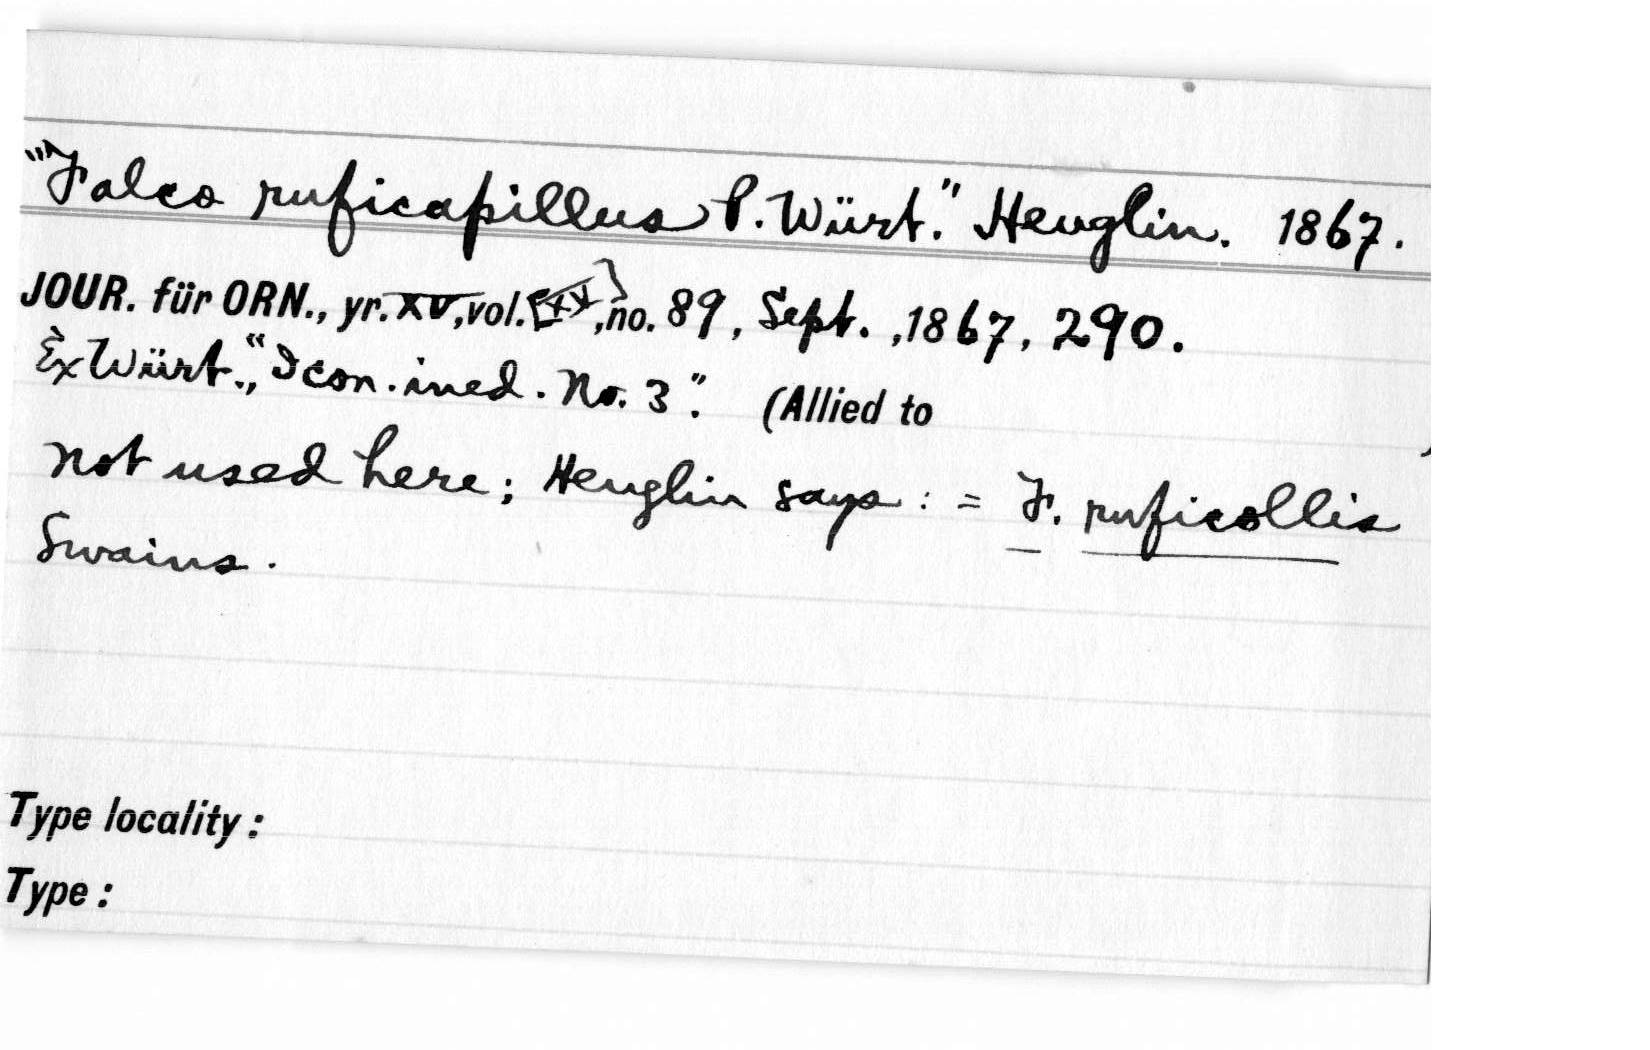 "Falco ruficapillus P. Würt." Heuglin. 1867.
JOUR. für ORN., yr. XV, vol. [XV], no. 89, Sept., 1867, 290.
Ex Würt., "Icon. ined. No. 3". (Allied to )
not used here; Heuglin says: = F. ruficollis
Swains.
Type locality:
Type: